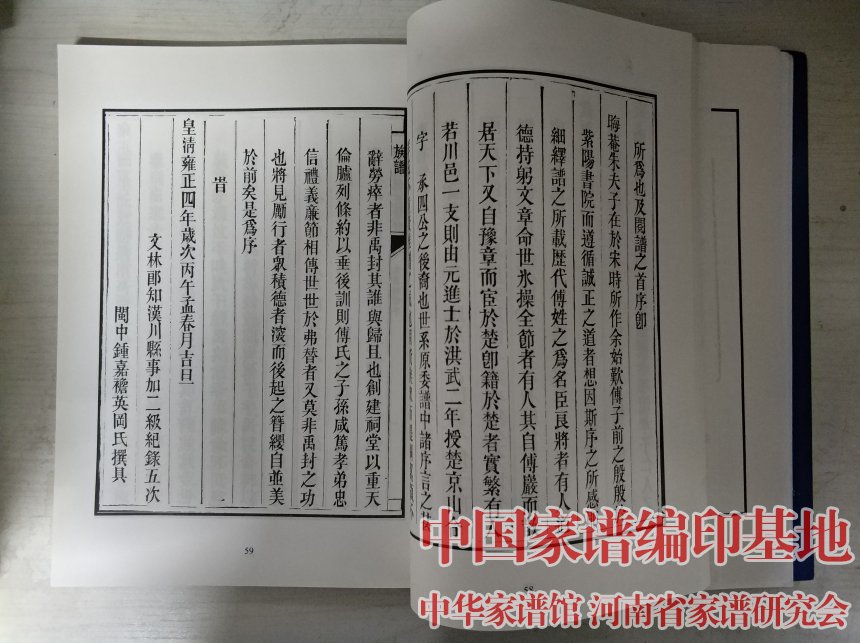 所爲也及閱譜之首序卽
晦菴朱夫子在於宋時所作余始歎傅子前之殷殷
紫陽書院而遵循誠正之道者想因斯序之所感
細繹譜之所載歷代傅姓之爲名臣良將者有人
德持躬文章命世氷操全節者有人其自傅巖而
居天下又自豫章而宦於楚卽籍於楚者實繁有
若川邑一支則由元進士於洪武二年授楚京山
字承四公之後裔也世系原委譜中諸序言之
族譜
辭勞瘁者非禹封其誰與歸且也創建祠堂以重天
倫臚列條約以垂後訓則傅氏之子孫咸篤孝弟忠
信禮義廉節相傳世世於弗替者又莫非禹封之功
也將見勵行者衆積德者深而後起之簪纓自並美
於前矣是爲序
旹
皇淸雍正四年歲次丙午孟春月吉旦
文林郞知漢川縣事加二級紀錄五次
閩中鍾嘉襜英岡氏撰具
59
58
中国家谱编印基地
中华家谱馆 河南省家谱研究会